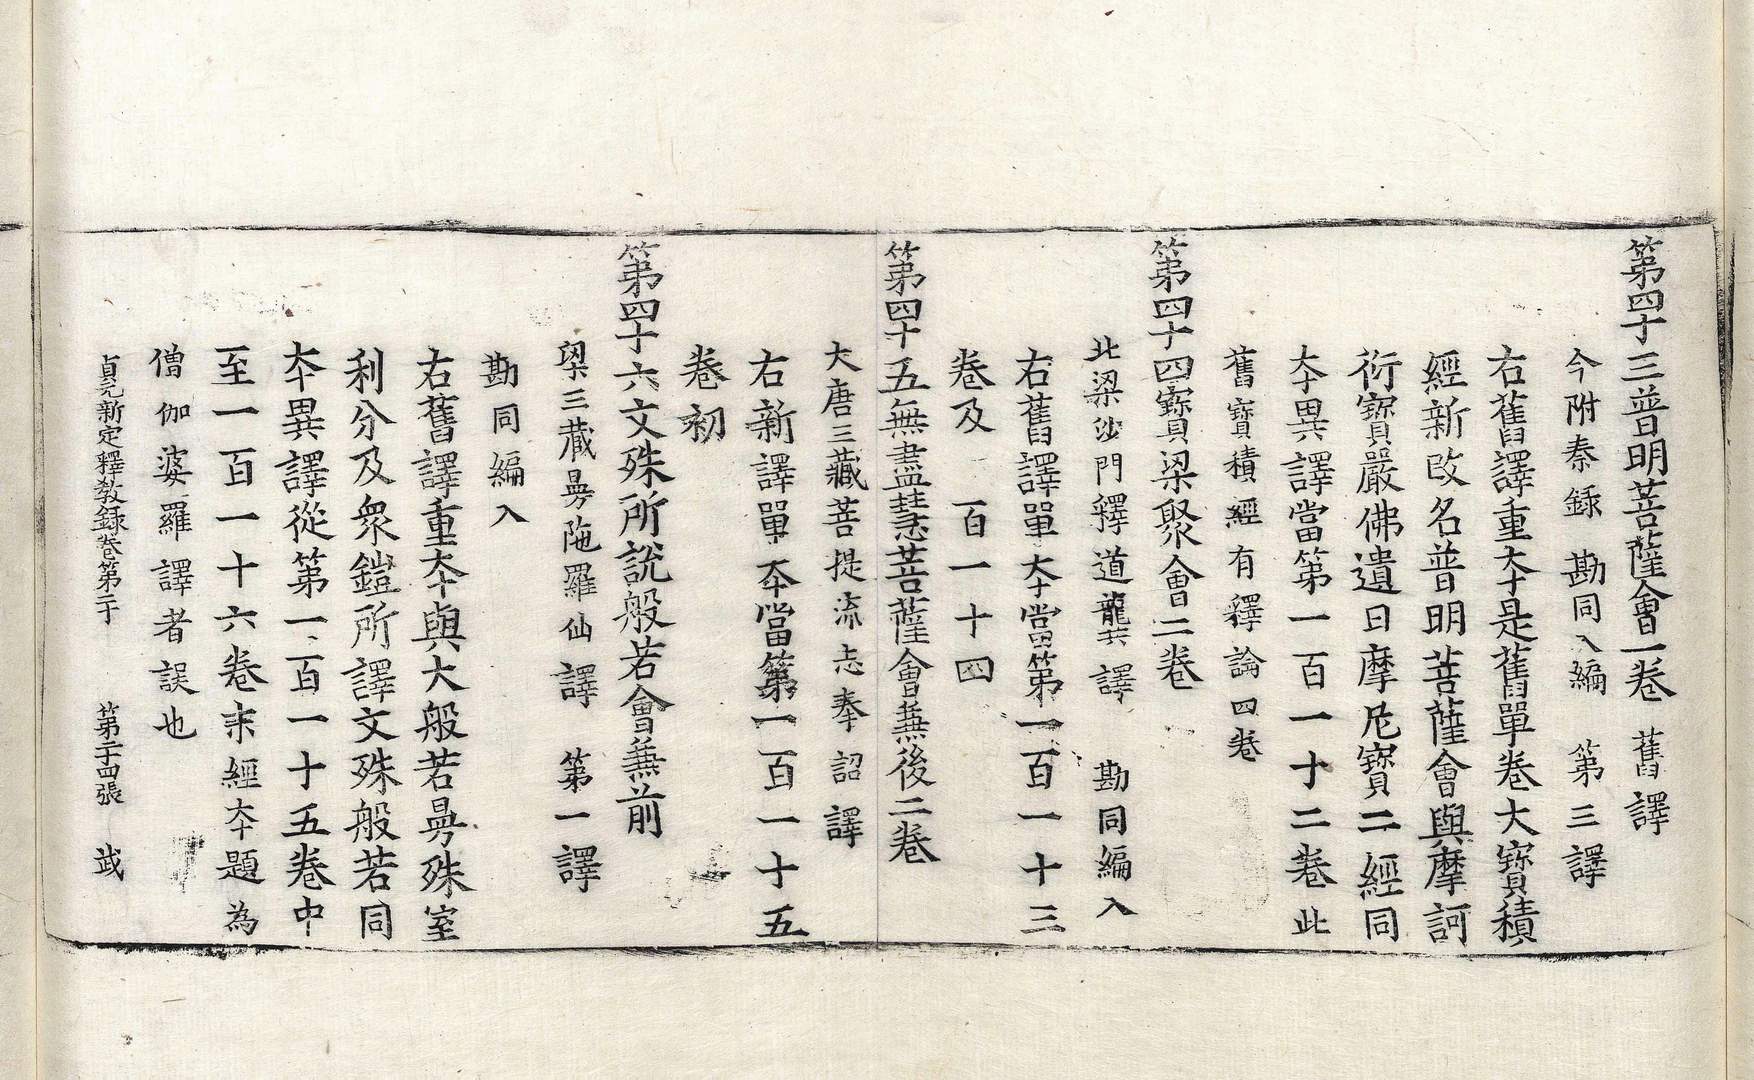 第四十三普明菩薩會一卷　舊譯
今附秦録　勘同入編　第三譯
右舊譯重夲是舊單卷大寶積
經新改名普明菩薩會與摩訶
衍寶嚴佛遺日摩尼寶二經同
夲異譯當第一百一十二卷此
舊寶積經有釋論四卷
第四十四寶梁聚會二卷
北梁沙門釋道龔共譯　勘同編入
右舊譯單夲當第一百一十三
卷及一百一十四
第四十五無盡慧菩薩會蕪後二卷
大唐三藏菩提流志奉詔譯
右新譯單夲當第一百一十五
卷初
第四十六文殊所說般若會蕪前
梁三藏㬅陁羅仙譯　第一譯
勘同編入
右舊譯重夲與大般若㬅殊室
利分及衆鎧所譯文殊般若同
夲異譯從第一百一十五卷中
至一百一十六卷末經夲題為
僧伽婆羅譯者誤也
貞元新定釋教録卷第二十　第二十四張　㦲